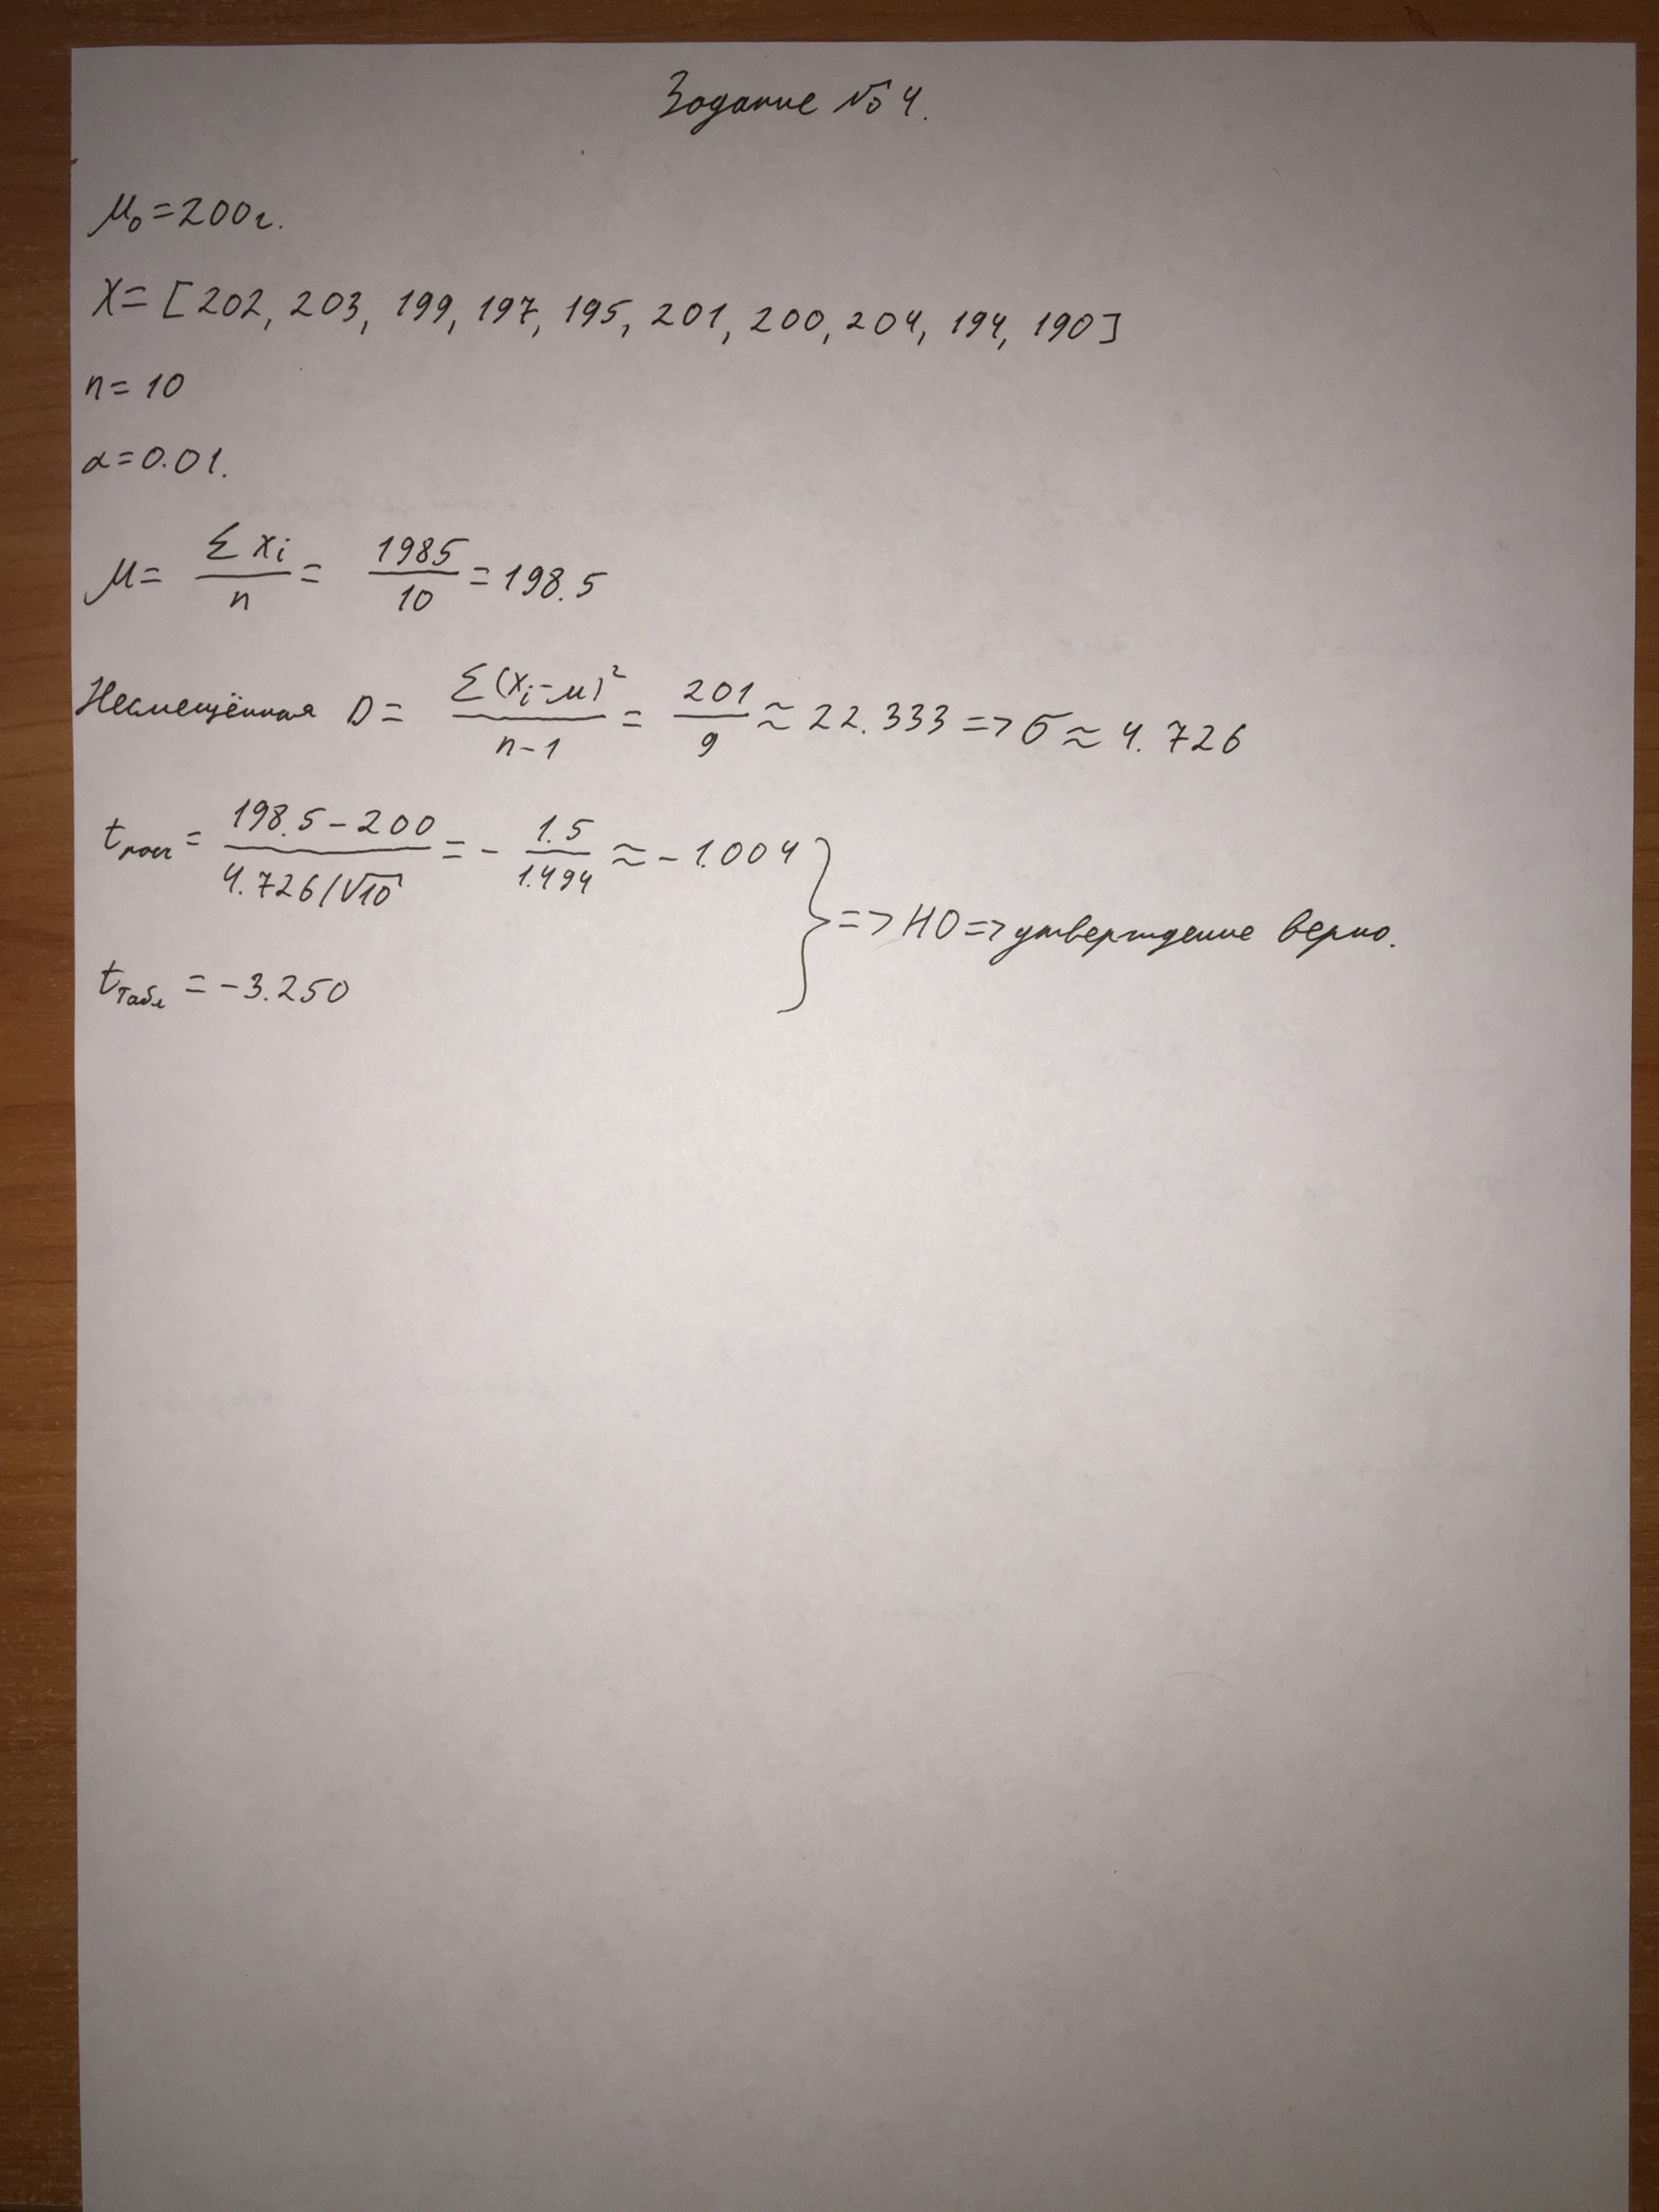 Задание № 4.
μ₀ = 200г.
X = [202, 203, 199, 197, 195, 201, 200, 204, 194, 190]
n = 10
α = 0.01.
μ = Σxi / n = 1985 / 10 = 198.5
Несмещённая D = Σ(xi - μ)² / n-1 = 201 / 9 ≈ 22.333 => σ ≈ 4.726
tрасч = 198.5 - 200 / 4.726/√10 = - 1.5 / 1.494 ≈ -1.004
=> H0 => утверждение верно.
tтабл = -3.250